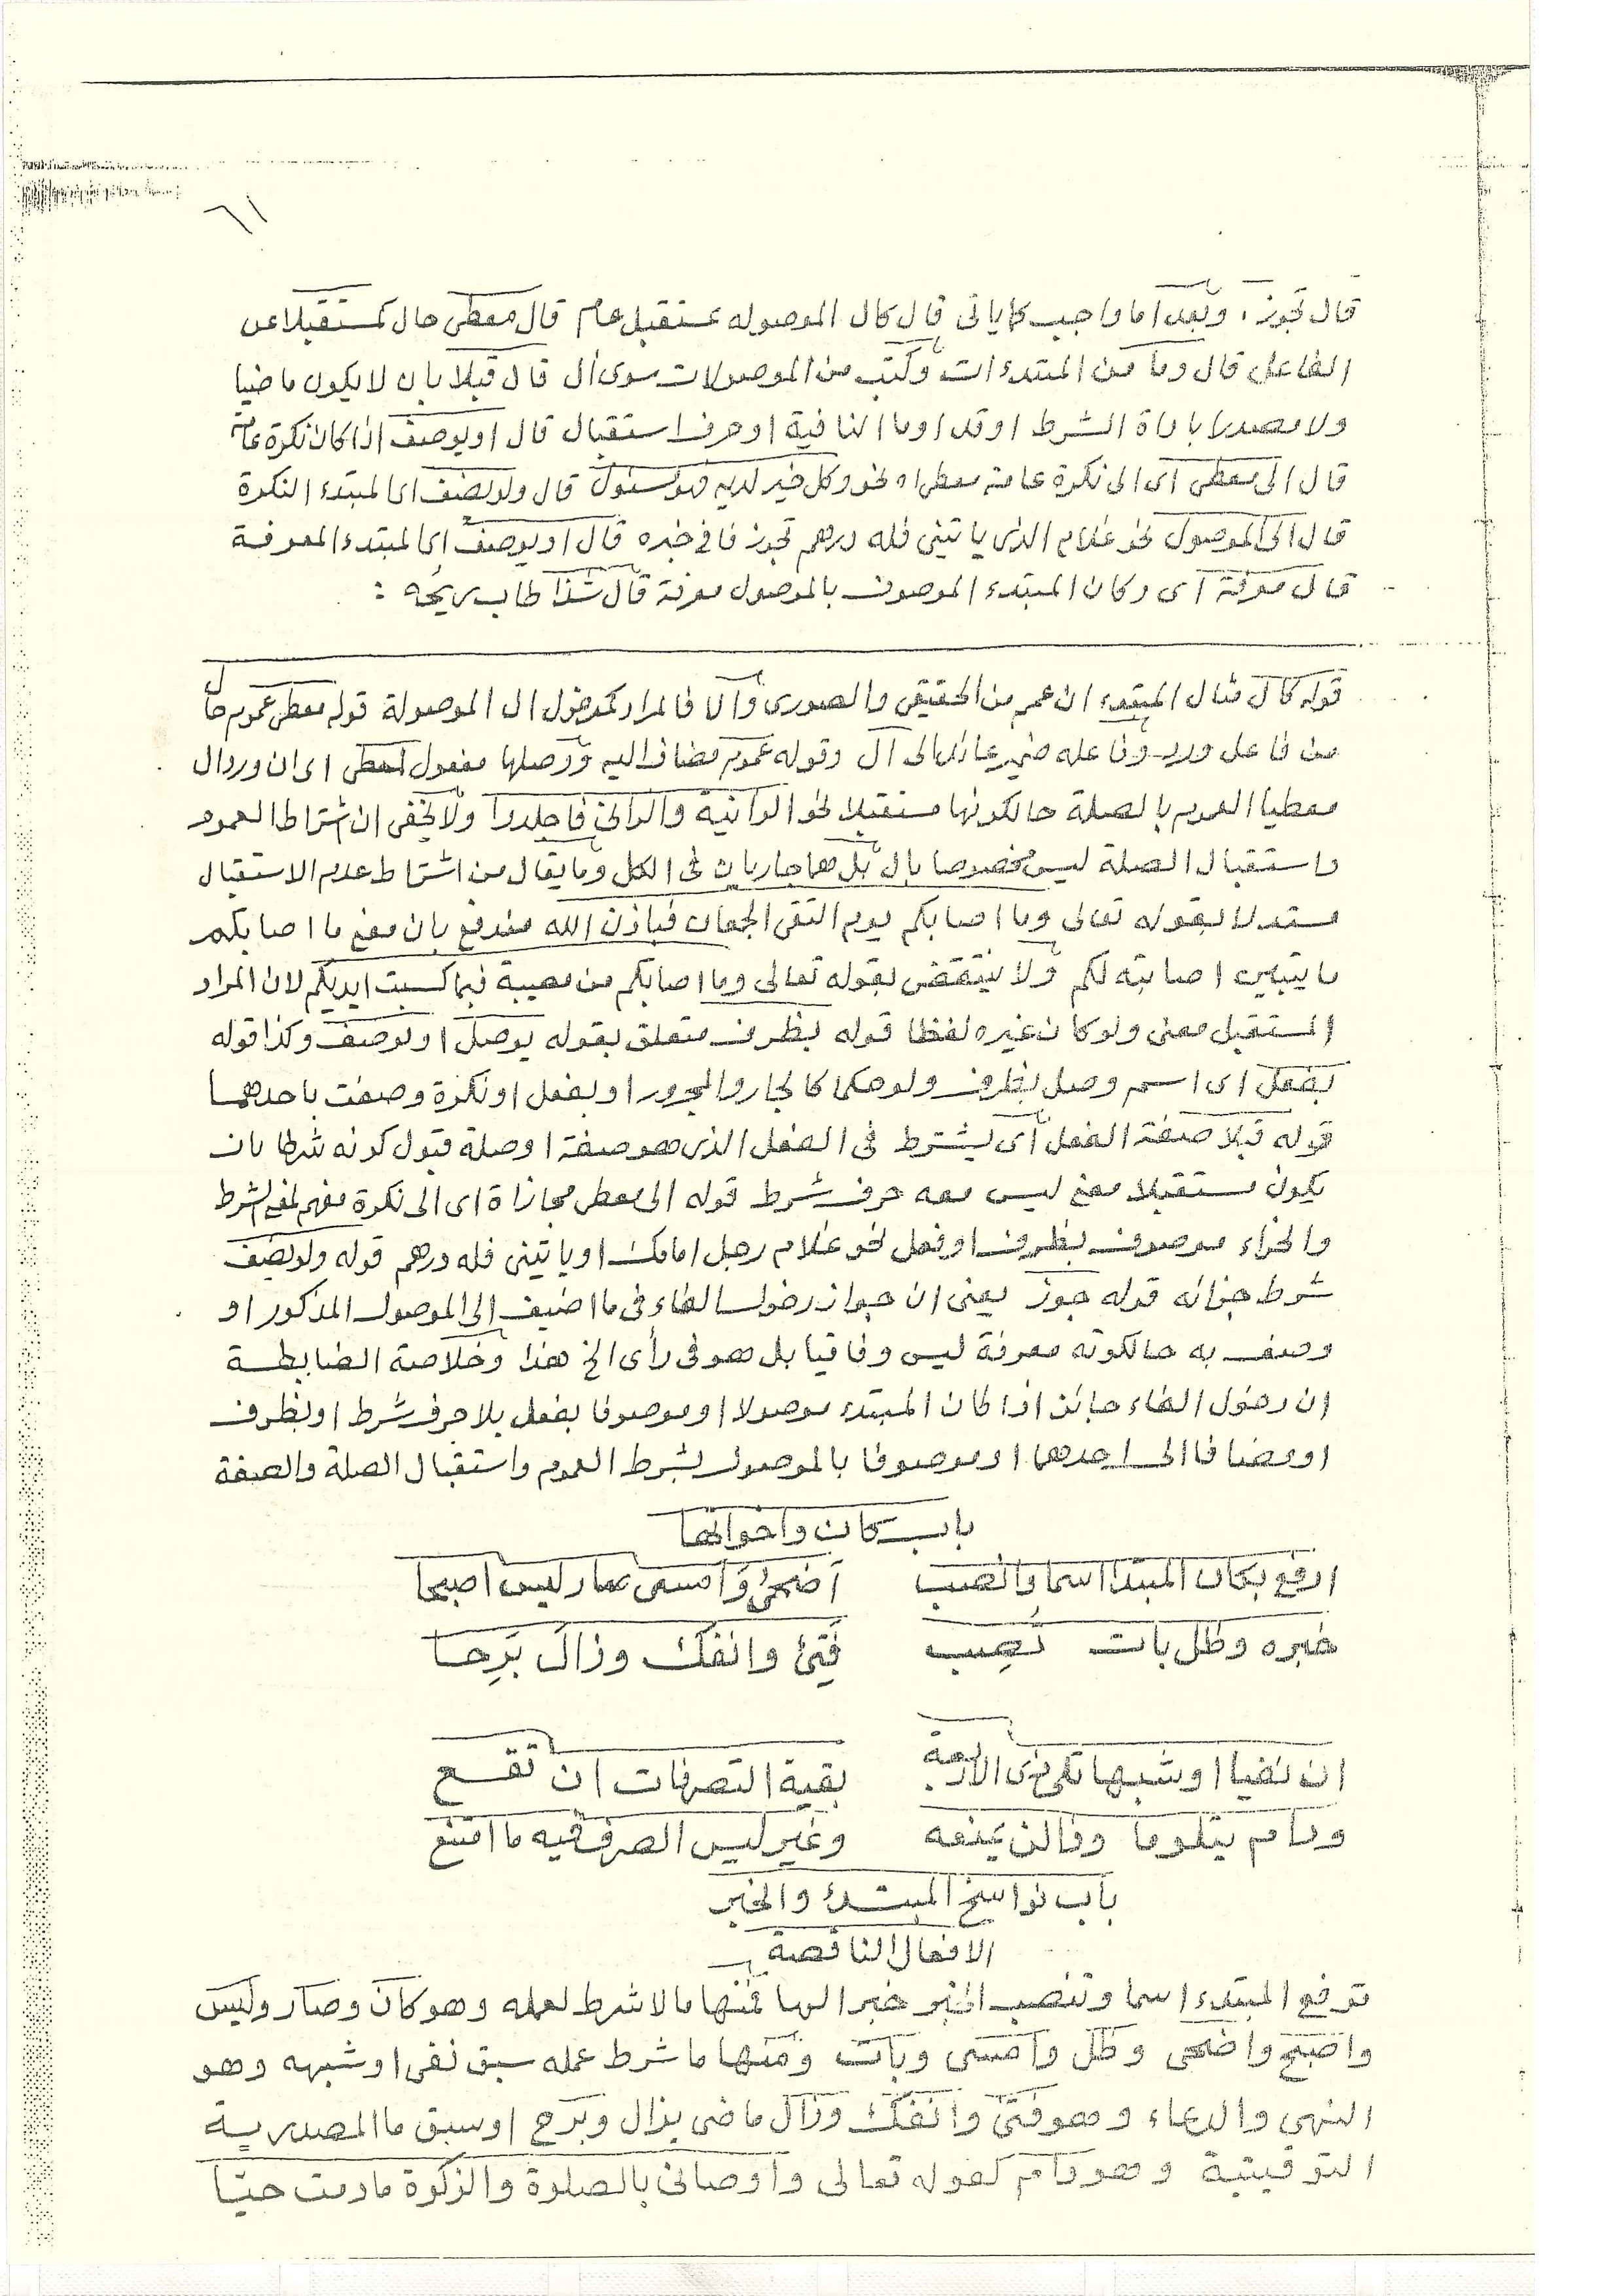 ٦١
قال تجوز، وبعد اما واجب كما ياتى قال كال الموصوله بمستقبل عام قال معطى حال كمستقبلا عن
الفاعل قال وما من المبتدءات وكتب من الموصولات سوى ال قال قبلا بان لا يكون ماضيا
ولا مصدرا باداة الشرط او قد او ما النافية او حرف استقبال قال او يوصف اذا كان نكرة عامة
قال الى معطى اى الى نكرة عامة معطى نحو وكل خير لديه فهو مسئول قال ولو يضف اى المبتدء النكرة
قال الى الموصول نحو غلام الذى ياتينى فله درهم تجوز فا فى خبره قال او يوصف اى المبتدء المعرفة
قال معرفة اى وكان المبتدء الموصوف بالموصول معرفة قال شذا طاب ريحه :
قوله كال مثال المبتدء ان عمم من الحقيقى والصورى والا فالمراد كمدخول ال الموصولة قوله معطى عموم حال
من فاعل ورد وفاعله ضمير عائد الى ال وقوله عموم مضاف اليه ووصلها مفعول لمعطى اى ان ورد ال
معطيا العموم بالصلة حالكونها مستقبلا نحو الزانية والزانى فاجلدوا ولا يخفى ان اشتراط العموم
واستقبال الصلة ليس مخصوصا بال بل هما جاريان فى الكل وما يقال من اشتراط عدم الاستقبال
مستدلا بقوله تعالى وما اصابكم يوم التقى الجمعان فباذن الله مندفع بان معنى ما اصابكم
ما يتبين اصابته لكم ولا ينتقض بقوله تعالى وما اصابكم من مصيبة فبما كسبت ايديكم لان المراد
المستقبل معنى ولو كان غيره لفظا قوله بظرف متعلق بقوله يوصل او يوصف وكذا قوله
بفعل اى اسم وصل بظرف ولو حكما كالجار والمجرور او بفعل او نكرة وصفت باحدهما
قوله قبلا صفة الفعل اى يشترط فى الفعل الذى هو صفة او صلة قبول كونه شرطا بان
يكون مستقبلا معنى ليس معه حرف شرط قوله الى معطى مجازاة اى الى نكرة مفهم لمعنى الشرط
والجزاء موصوف بظرف او فعل نحو غلام رجل امامك او ياتينى فله درهم قوله ولو يضف
شرط جزائه قوله جوز يعنى ان جواز دخول الفاء فى ما اضيف الى الموصول المذكور او
وصف به حالكونه معرفة ليس وفاقيا بل هو فى رأى الخ هذا وخلاصة الضابطة
ان دخول الفاء جائز اذا كان المبتدء موصولا او موصوفا بفعل بلا حرف شرط او بظرف
او مضافا الى احدهما او موصوفا بالموصول بشرط العموم واستقبال الصلة والصفة
باب كان واخواتها
ارفع بكان المبتدا اسما وانصب اضحى وامسى صار ليس اصبحا
خبره وظل بات نُصِب فَتِئ وانفك وزال بَرِحا
ان نفيا او شبهها تلى ذى الاربعة بقية التصرفات ان تقع
ودام يتلو ما وفا لن يمنعه وغير ليس الصرف فيه ما امتنع
باب نواسخ المبتدء والخبر
الافعال الناقصة
ترفع المبتدء اسما وتنصب الخبر خبرا لها فمنها ما لا شرط لعمله وهو كان وصار وليس
واصبح واضحى وظل وامسى وبات ومنها ما شرط عمله سبق نفى او شبهه وهو
النهى والدعاء وهو فتئ وانفك وزال ماضى يزال وبرح او سبق ما المصدرية
التوقيتية وهو دام كقوله تعالى واوصانى بالصلوة والزكوة ما دمت حيّا